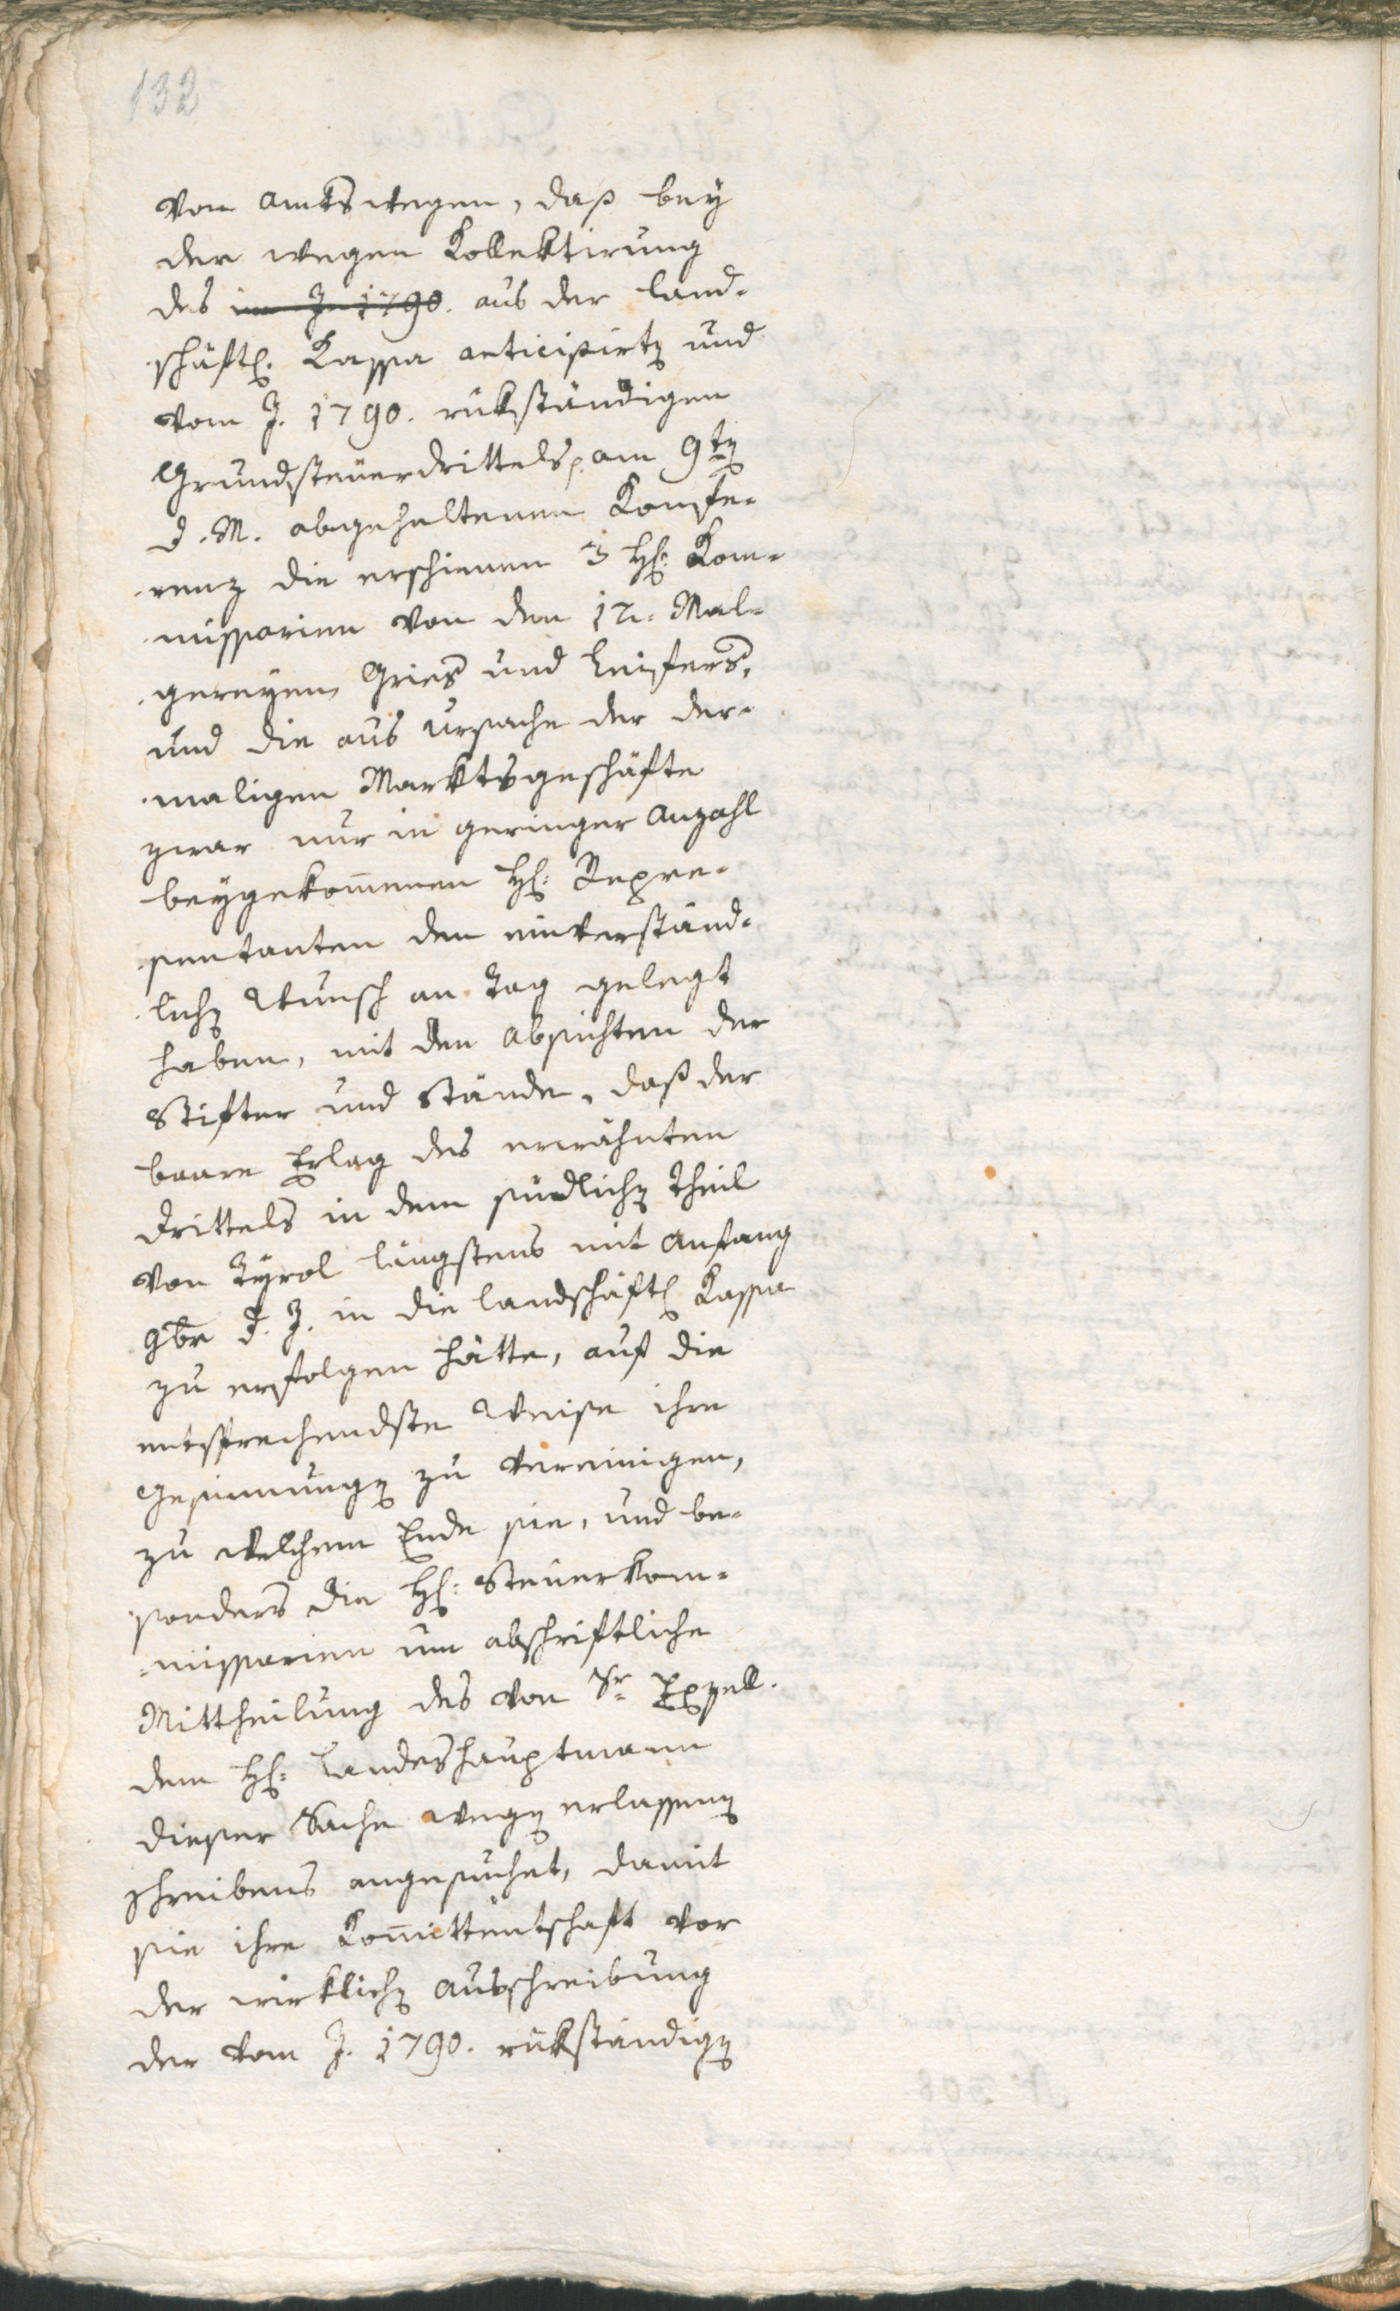 132
von Amtswegen, daß bey
der wegen Kollektirung
des im J. 1790. aus der land-
schäftl. Kassa anticipirtn und
vom J. 1790. rükständigen
Grundsteuerdrittels, am 9tn
d. M. abgehaltenen Konfe-
renz die erschienen 3 H. Kom-
missarien von den 12. Mal-
greyen, Gries und Leifers,
und die aus Ursache der der-
maligen Marktsgeschäfte
zwar nur in geringer Anzahl
beygekommenen H. Repre-
sentanten den einverständ-
lichn Wunsch an Tag gelegt
haben, mit den Absichten der
Stifter und Stände, daß der
baare Erlag des erwähnten
Drittels in dem südlichn Theil
von Tyrol längstens mit Anfang
9br d. J. in die landschäftl Kassa
zu erfolgen hätte, auf die
entsprechendste Weise ihre
Gesinnungn zu vereinigen,
zu welchem Ende sie, und be-
sonders die H. Steuerkom-
missarien um abschriftliche
Mittheilung des von Sr Exzell.
dem H. Landeshauptmann
dieser Sache wegn erlassenn
Schreibens angesuchet, damit
sie ihre Komittentschaft vor
der wirklichn Ausschreibung
der vom J. 1790. rükständign